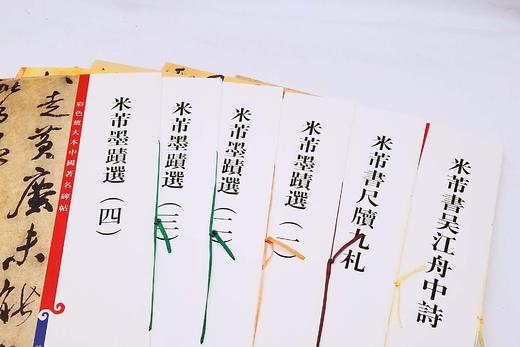 彩色放大本中國著名碑帖
米芾墨蹟選（四）
米芾墨蹟選（三）
米芾墨蹟選（二）
米芾墨蹟選（一）
米芾書尺牘九札
米芾書吴江舟中詩